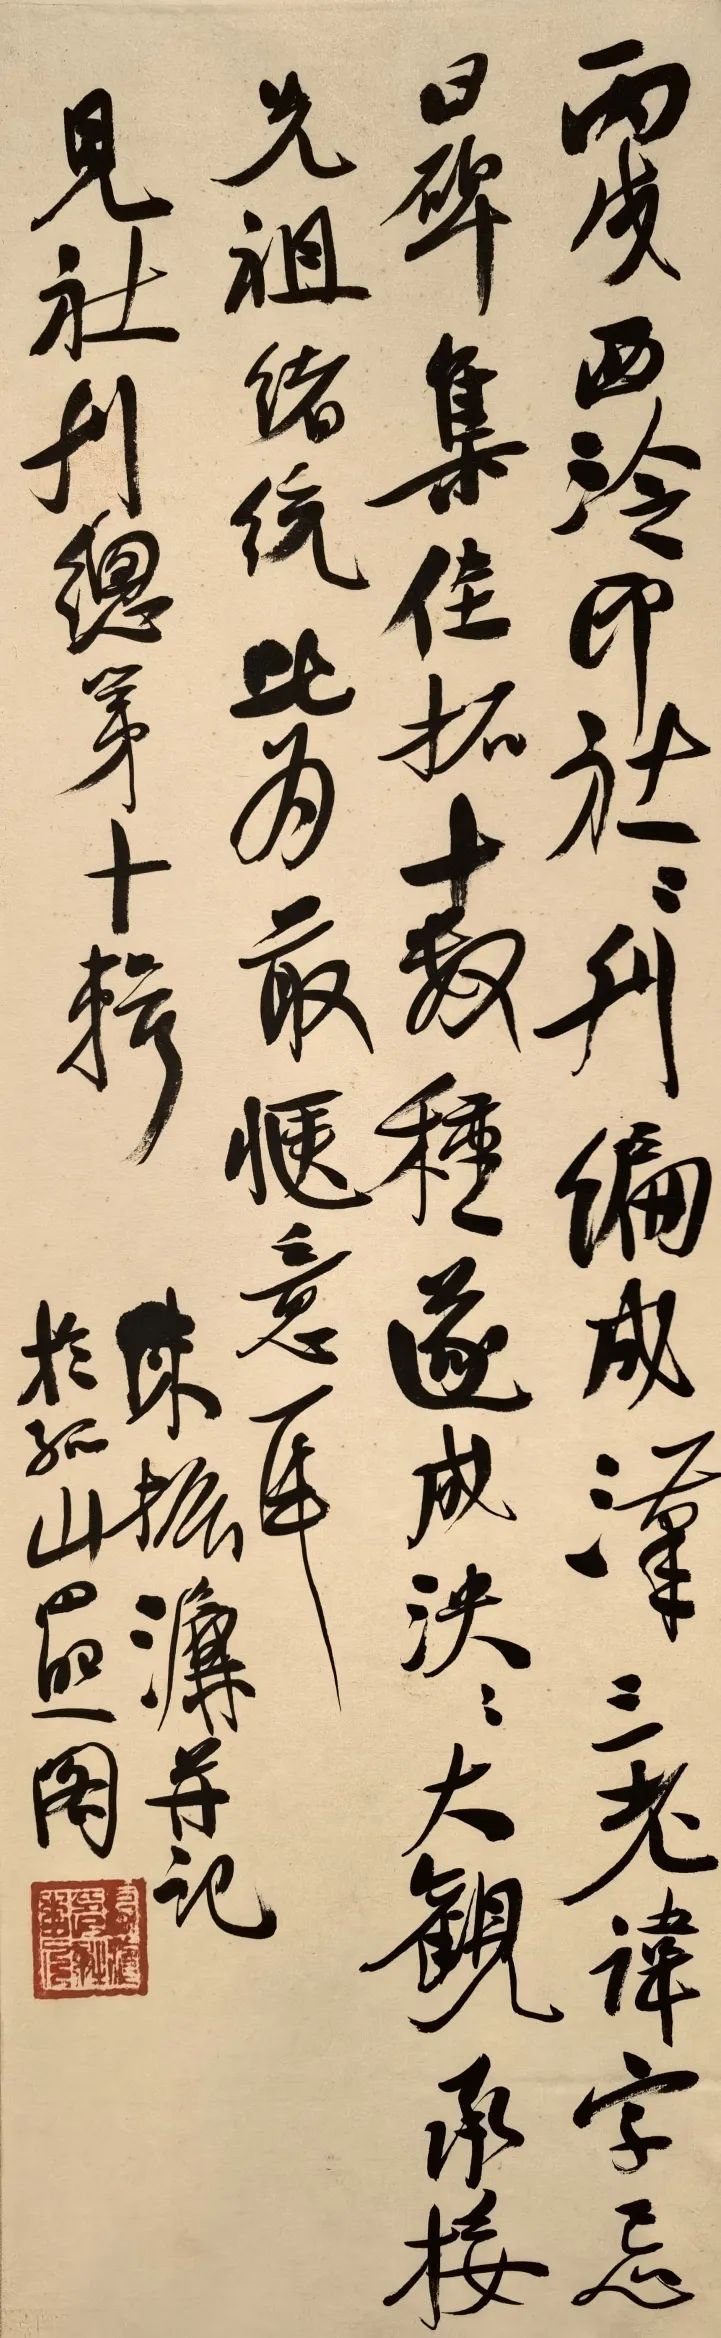 丙戌西泠印社〻刊編成漢三老諱字忌
日碑集佳拓十數種遂成泱〻大觀承接
先祖緒統此为最愜意耳
見社刊總第十輯
陳振濂并記
於孤山四照阁